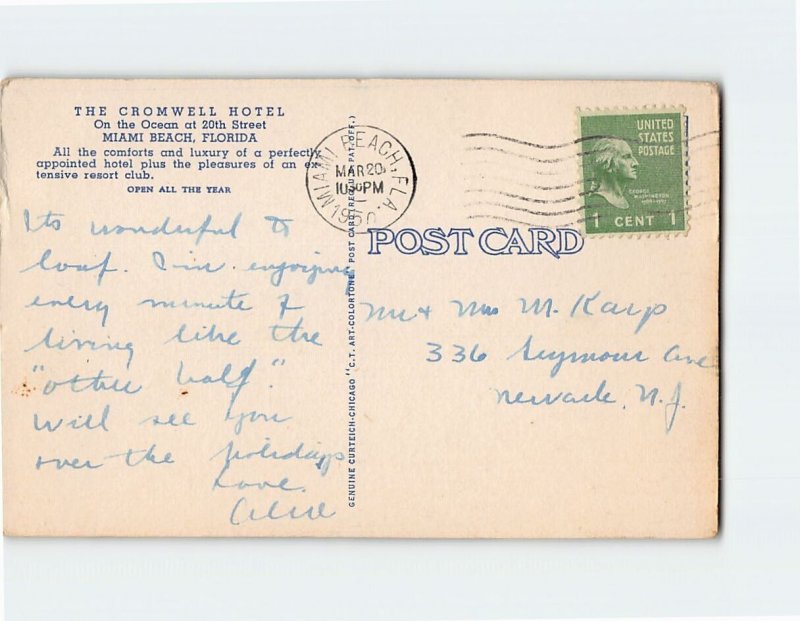 THE CROMWELL HOTEL
On the Ocean at 20th Street
MIAMI BEACH, FLORIDA
All the comforts and luxury of a perfectly
appointed hotel plus the pleasures of an ex-
tensive resort club.
OPEN ALL THE YEAR
Its wonderful to
loaf. I'm enjoying
every minute of
living like the
"other half."
Will see you
over the holidays
Love.
GENUINE CURTEICH-CHICAGO "C.T. ART-COLORTONE" POST CARD (REG. U.S. PAT. OFF.)
MIAMI BEACH, FLA.
MAR 20
PM
POST CARD
UNITED
STATES
POSTAGE
GEORGE
WASHINGTON
1 CENT 1
Mr + Mrs M. Karp
336 Seymour Ave
Newark, N.J.